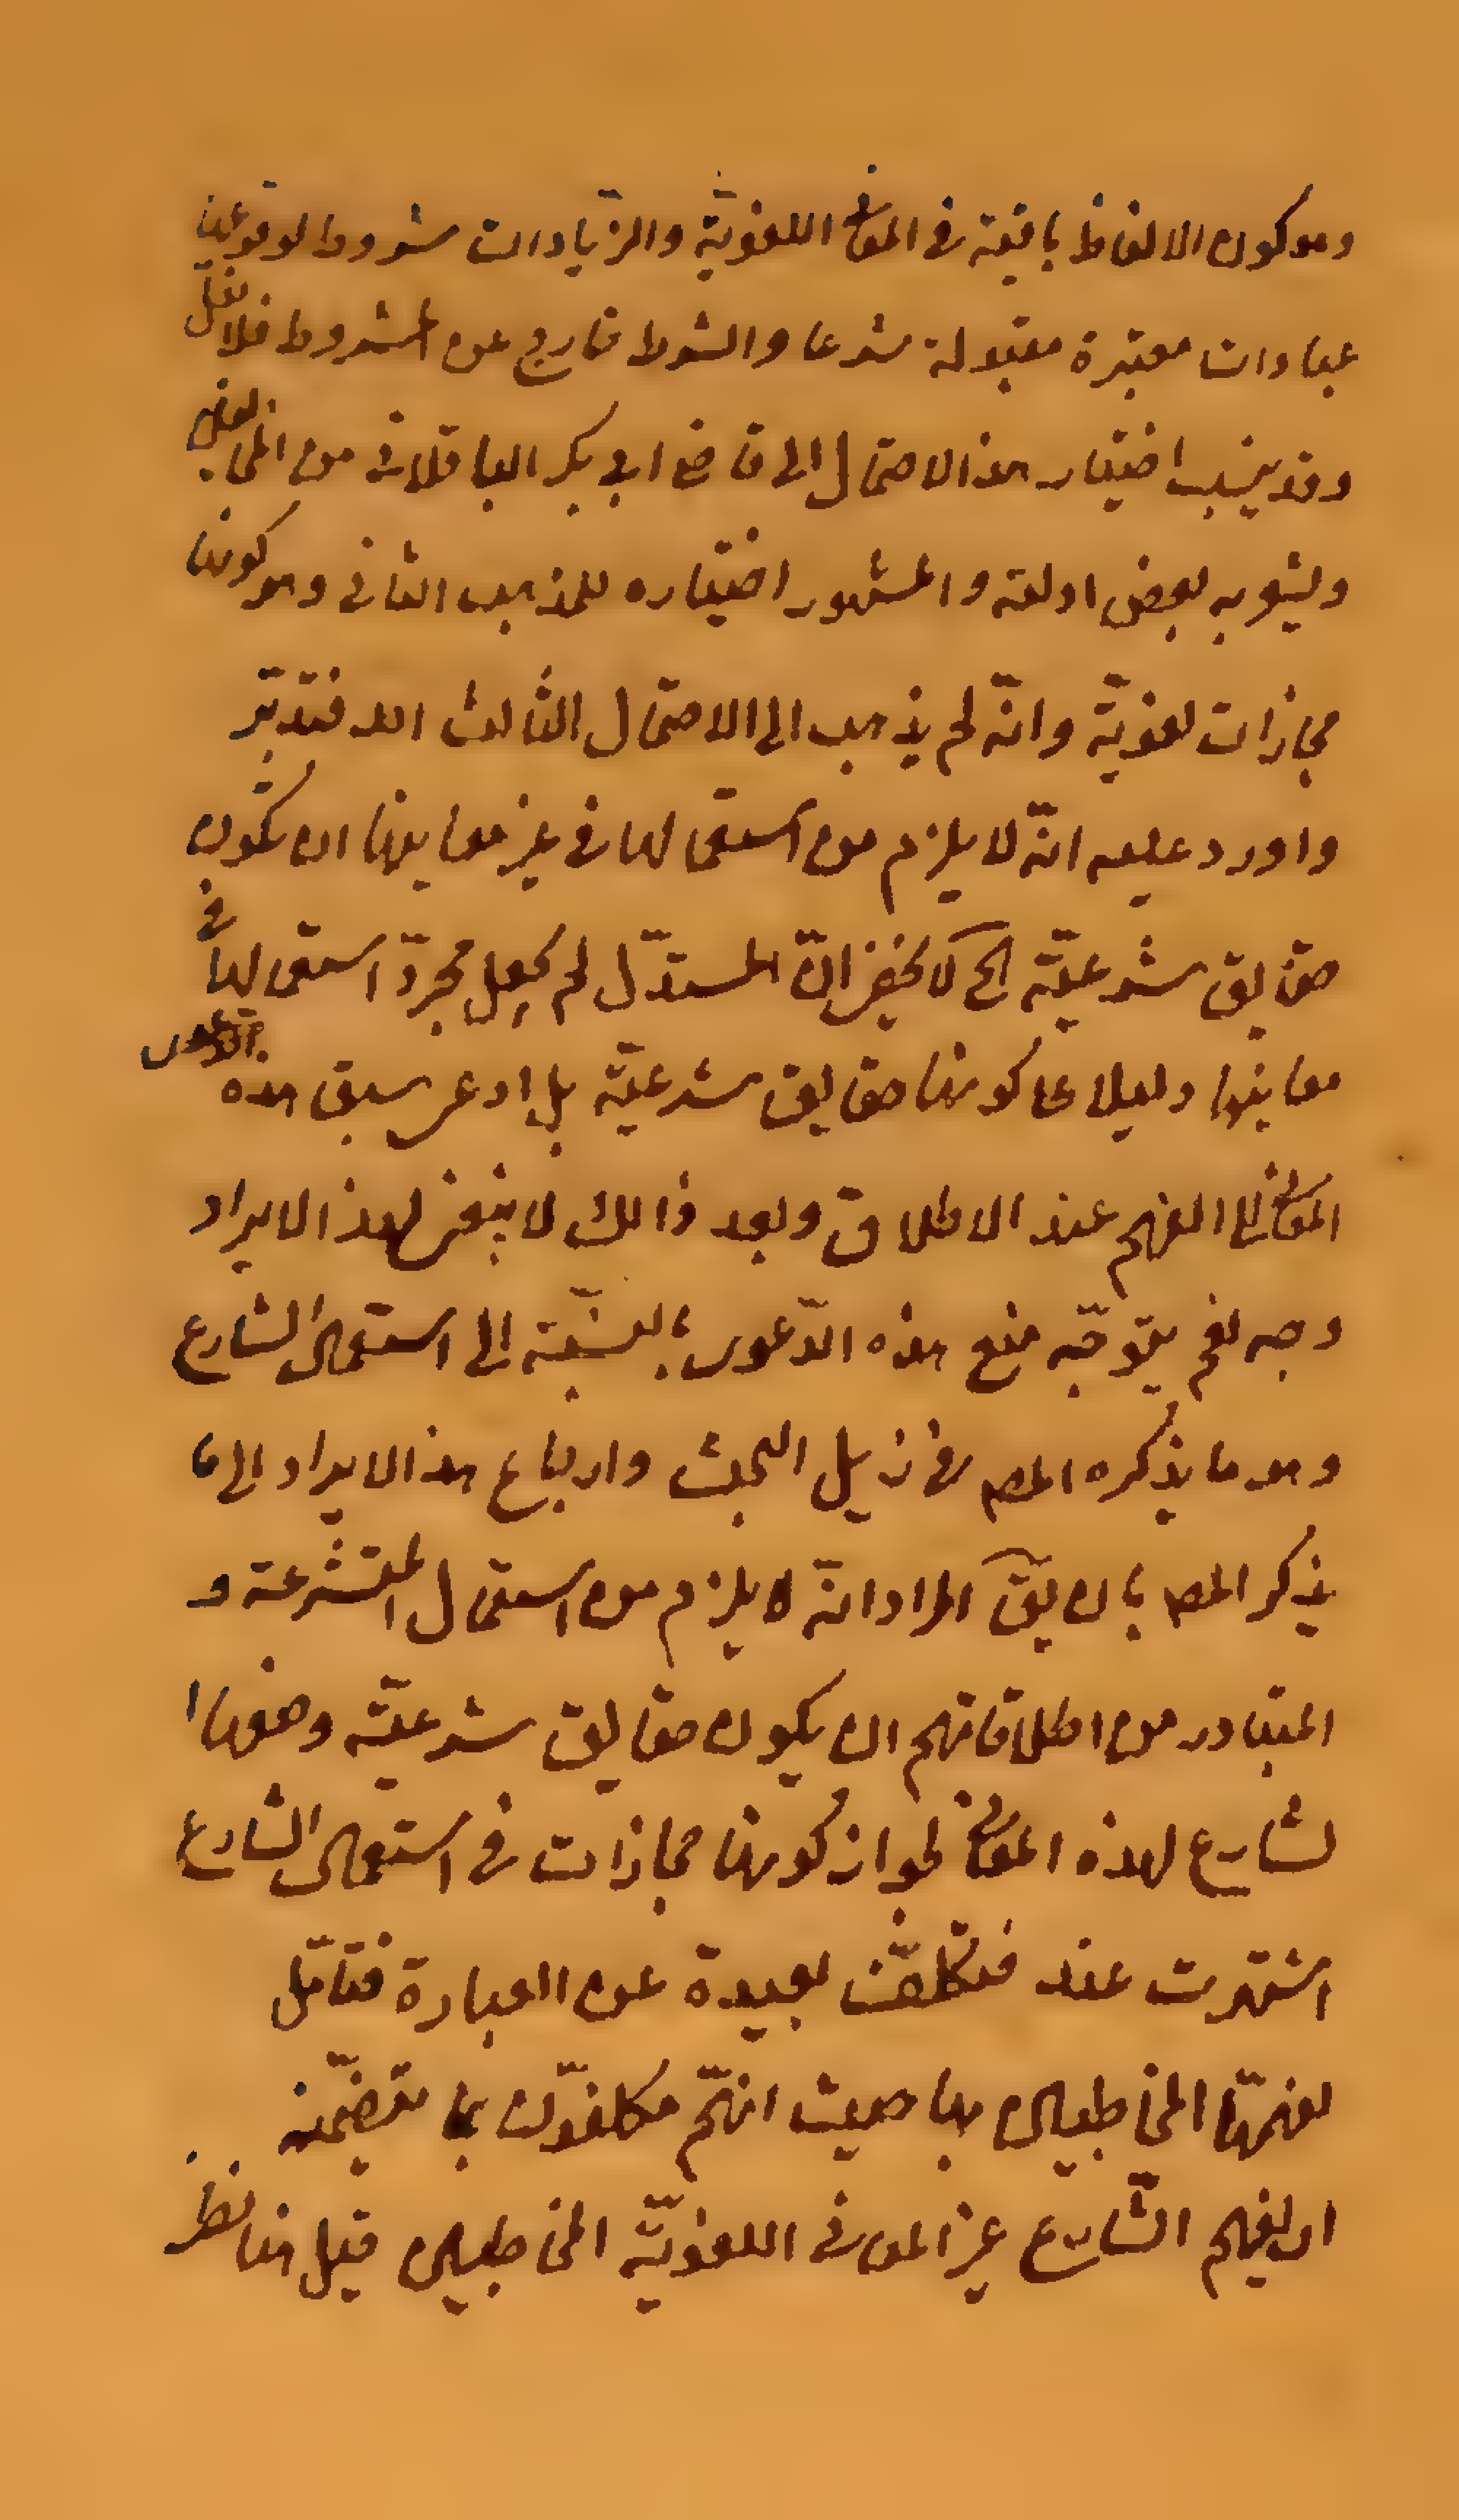 وهو كون الالفاظ باقية في المعاني اللغويّة والزّيادات شروط لوقوعها
عبادات معتبرة مقبولة شرعا والشرط خارج عن المشروط فلا نقل
وقد ينسب اختيار هذا الاحتمال الى قاضي ابي بكر الباقلاني من
ويشعر به بعض ادلته والمشهور اختياره للمذهب الثاني وهو كونها
مجازات لغويّة وانّه لم يذهب الى الاحتمال الثالث احد فتدبّر
واورد عليه انّه لا يلزم من استعمالها في غير معانيها ان تكون
حقايق شرعيّة الخ لا يخفى انّ المستدلّ لم يجعل مجرّد استعمالها في
معانيها دليلا على كونها حقايق شرعيّة بل ادعى سبق هذه
المعاني الى الفهم عند الاطلاق وبعد ذالك لا يبقى لهذا الايراد
وجه نعم يتوجّه منع هذه الدّعوى بالنسبة الى استعمال الشارع
وهو ما يذكره المص في ذيل البحث وارجاع هذا الايراد الى ما
يذكر المص بان يقٓ المراد انّه لا يلزم من استعمال المتشرعة و
المتبادر من اطلاقاتهم ان يكون حقايق شرعيّة وضعها ا
لشارع لهذه المعاني لجواز كونها مجازات في استعمال الشارع
اشتهرت عند فتكلّف بعيدة عن العبارة فتامّل
لفهمّها المخاطبين بها حيث انهّم مكلفوّن بما تتضمّنه
ان يفهم الشّارع غير المعاني اللغويّة المخاطبين قيل هنا نظر